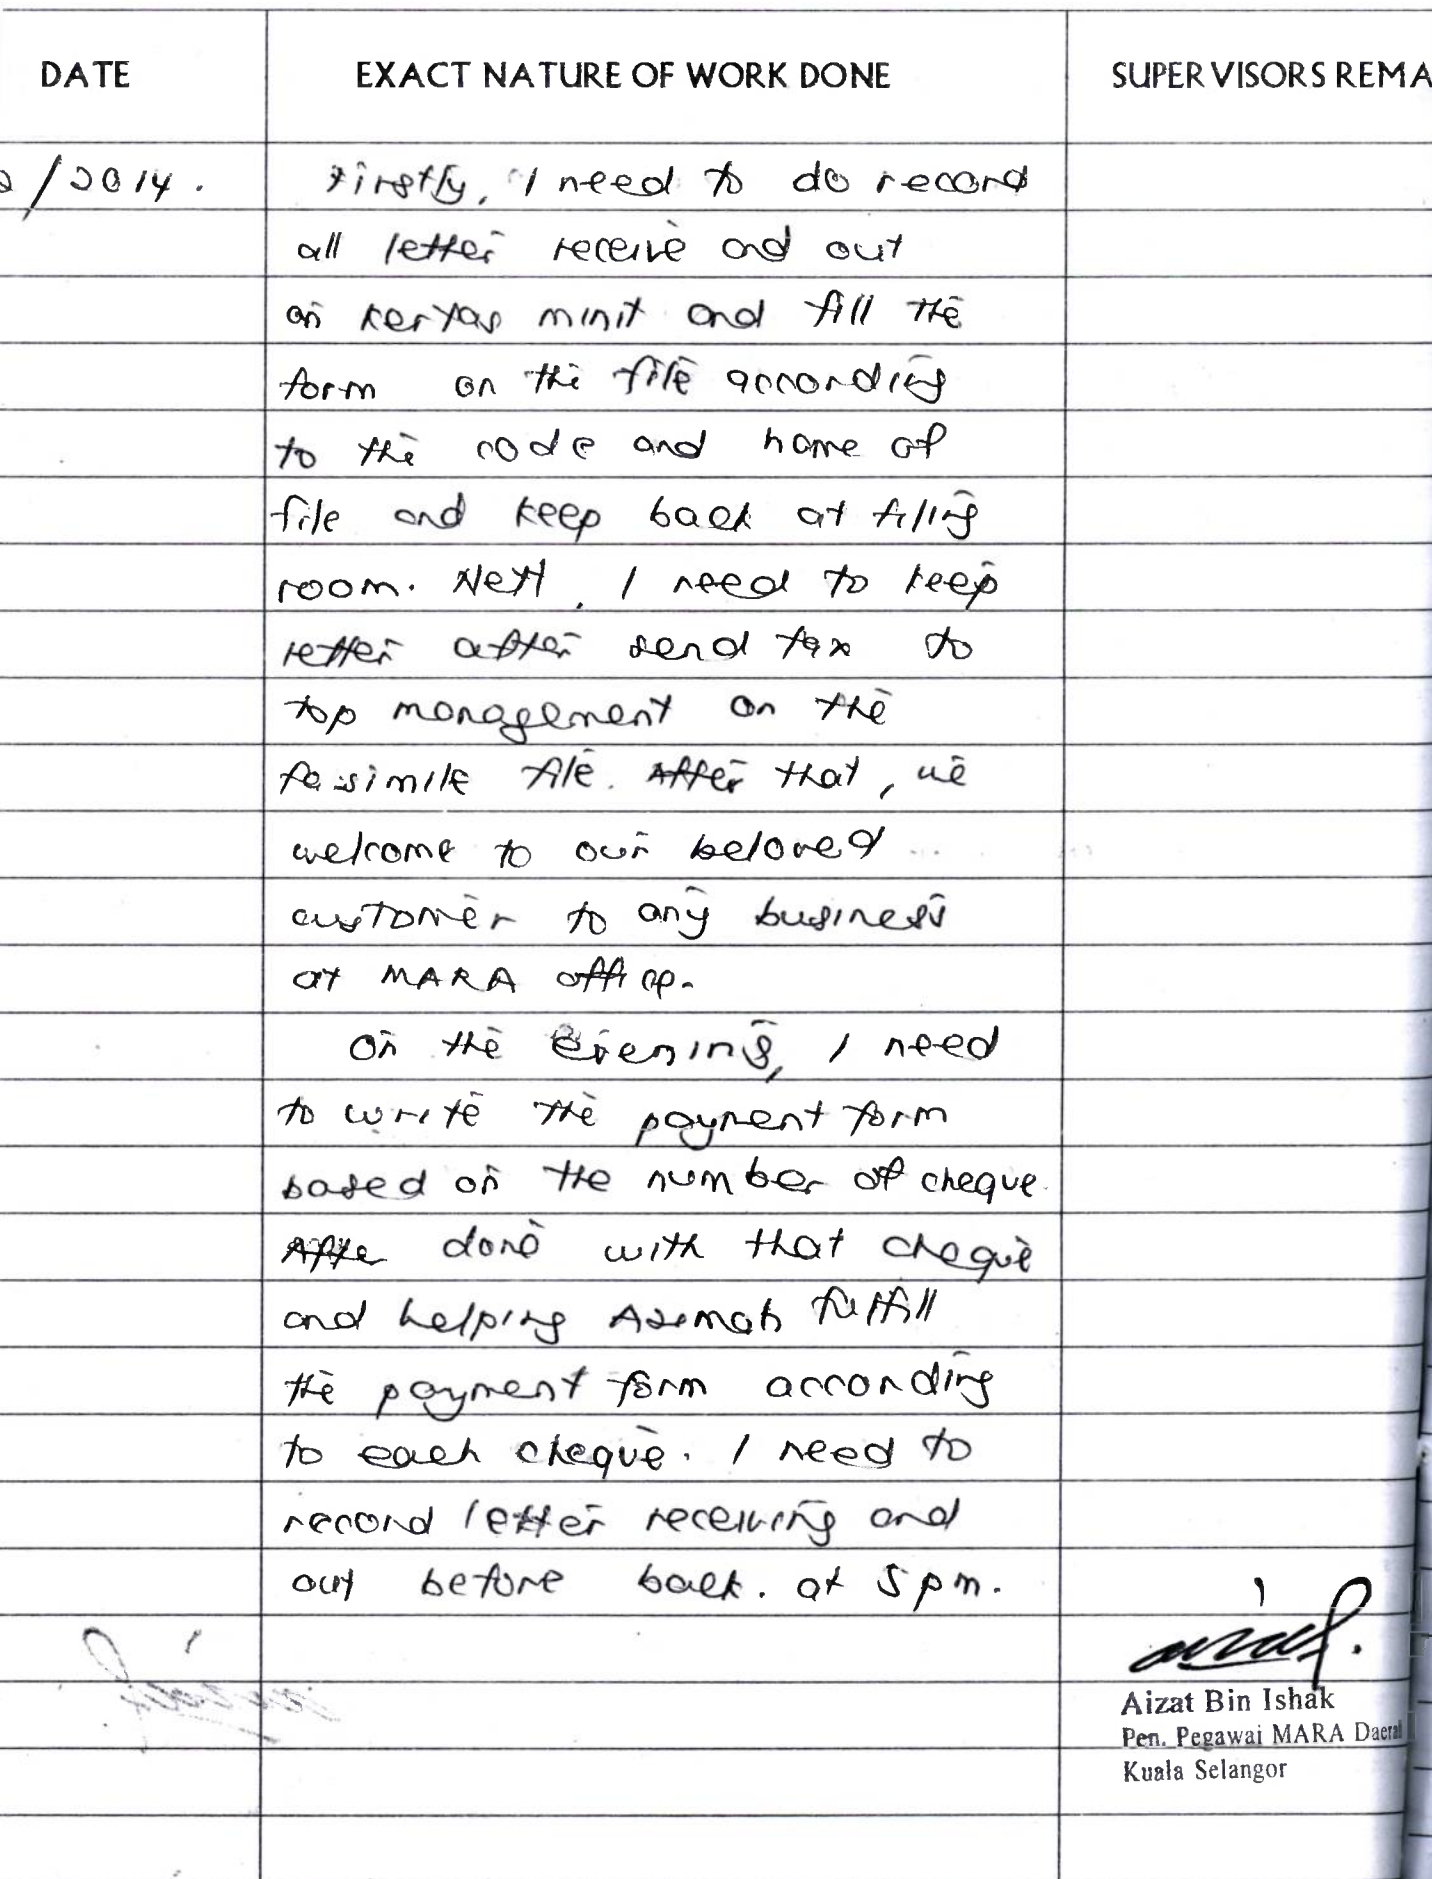 DATE EXACT NATURE OF WORK DONE SUPERVISORS REMA
2/2014. Firstly, I need to do record
all letter receive and out
on kertas minit and fill the
form on the file according
to the code and name of
file and keep back at filing
room. Next, I need to keep
letter after send fax to
top management on the
fasimile file. After that, we
welcome to our beloved
customer to any business
at MARA office.
On the evening, I need
to write the payment form
based on the number of cheque
After done with that cheque
and helping Azimah fulfill
the payment form according
to each cheque. I need to
record letter receiving and
out before back. at 5 pm.
Aizat Bin Ishak
Pen. Pegawai MARA Daerah
Kuala Selangor